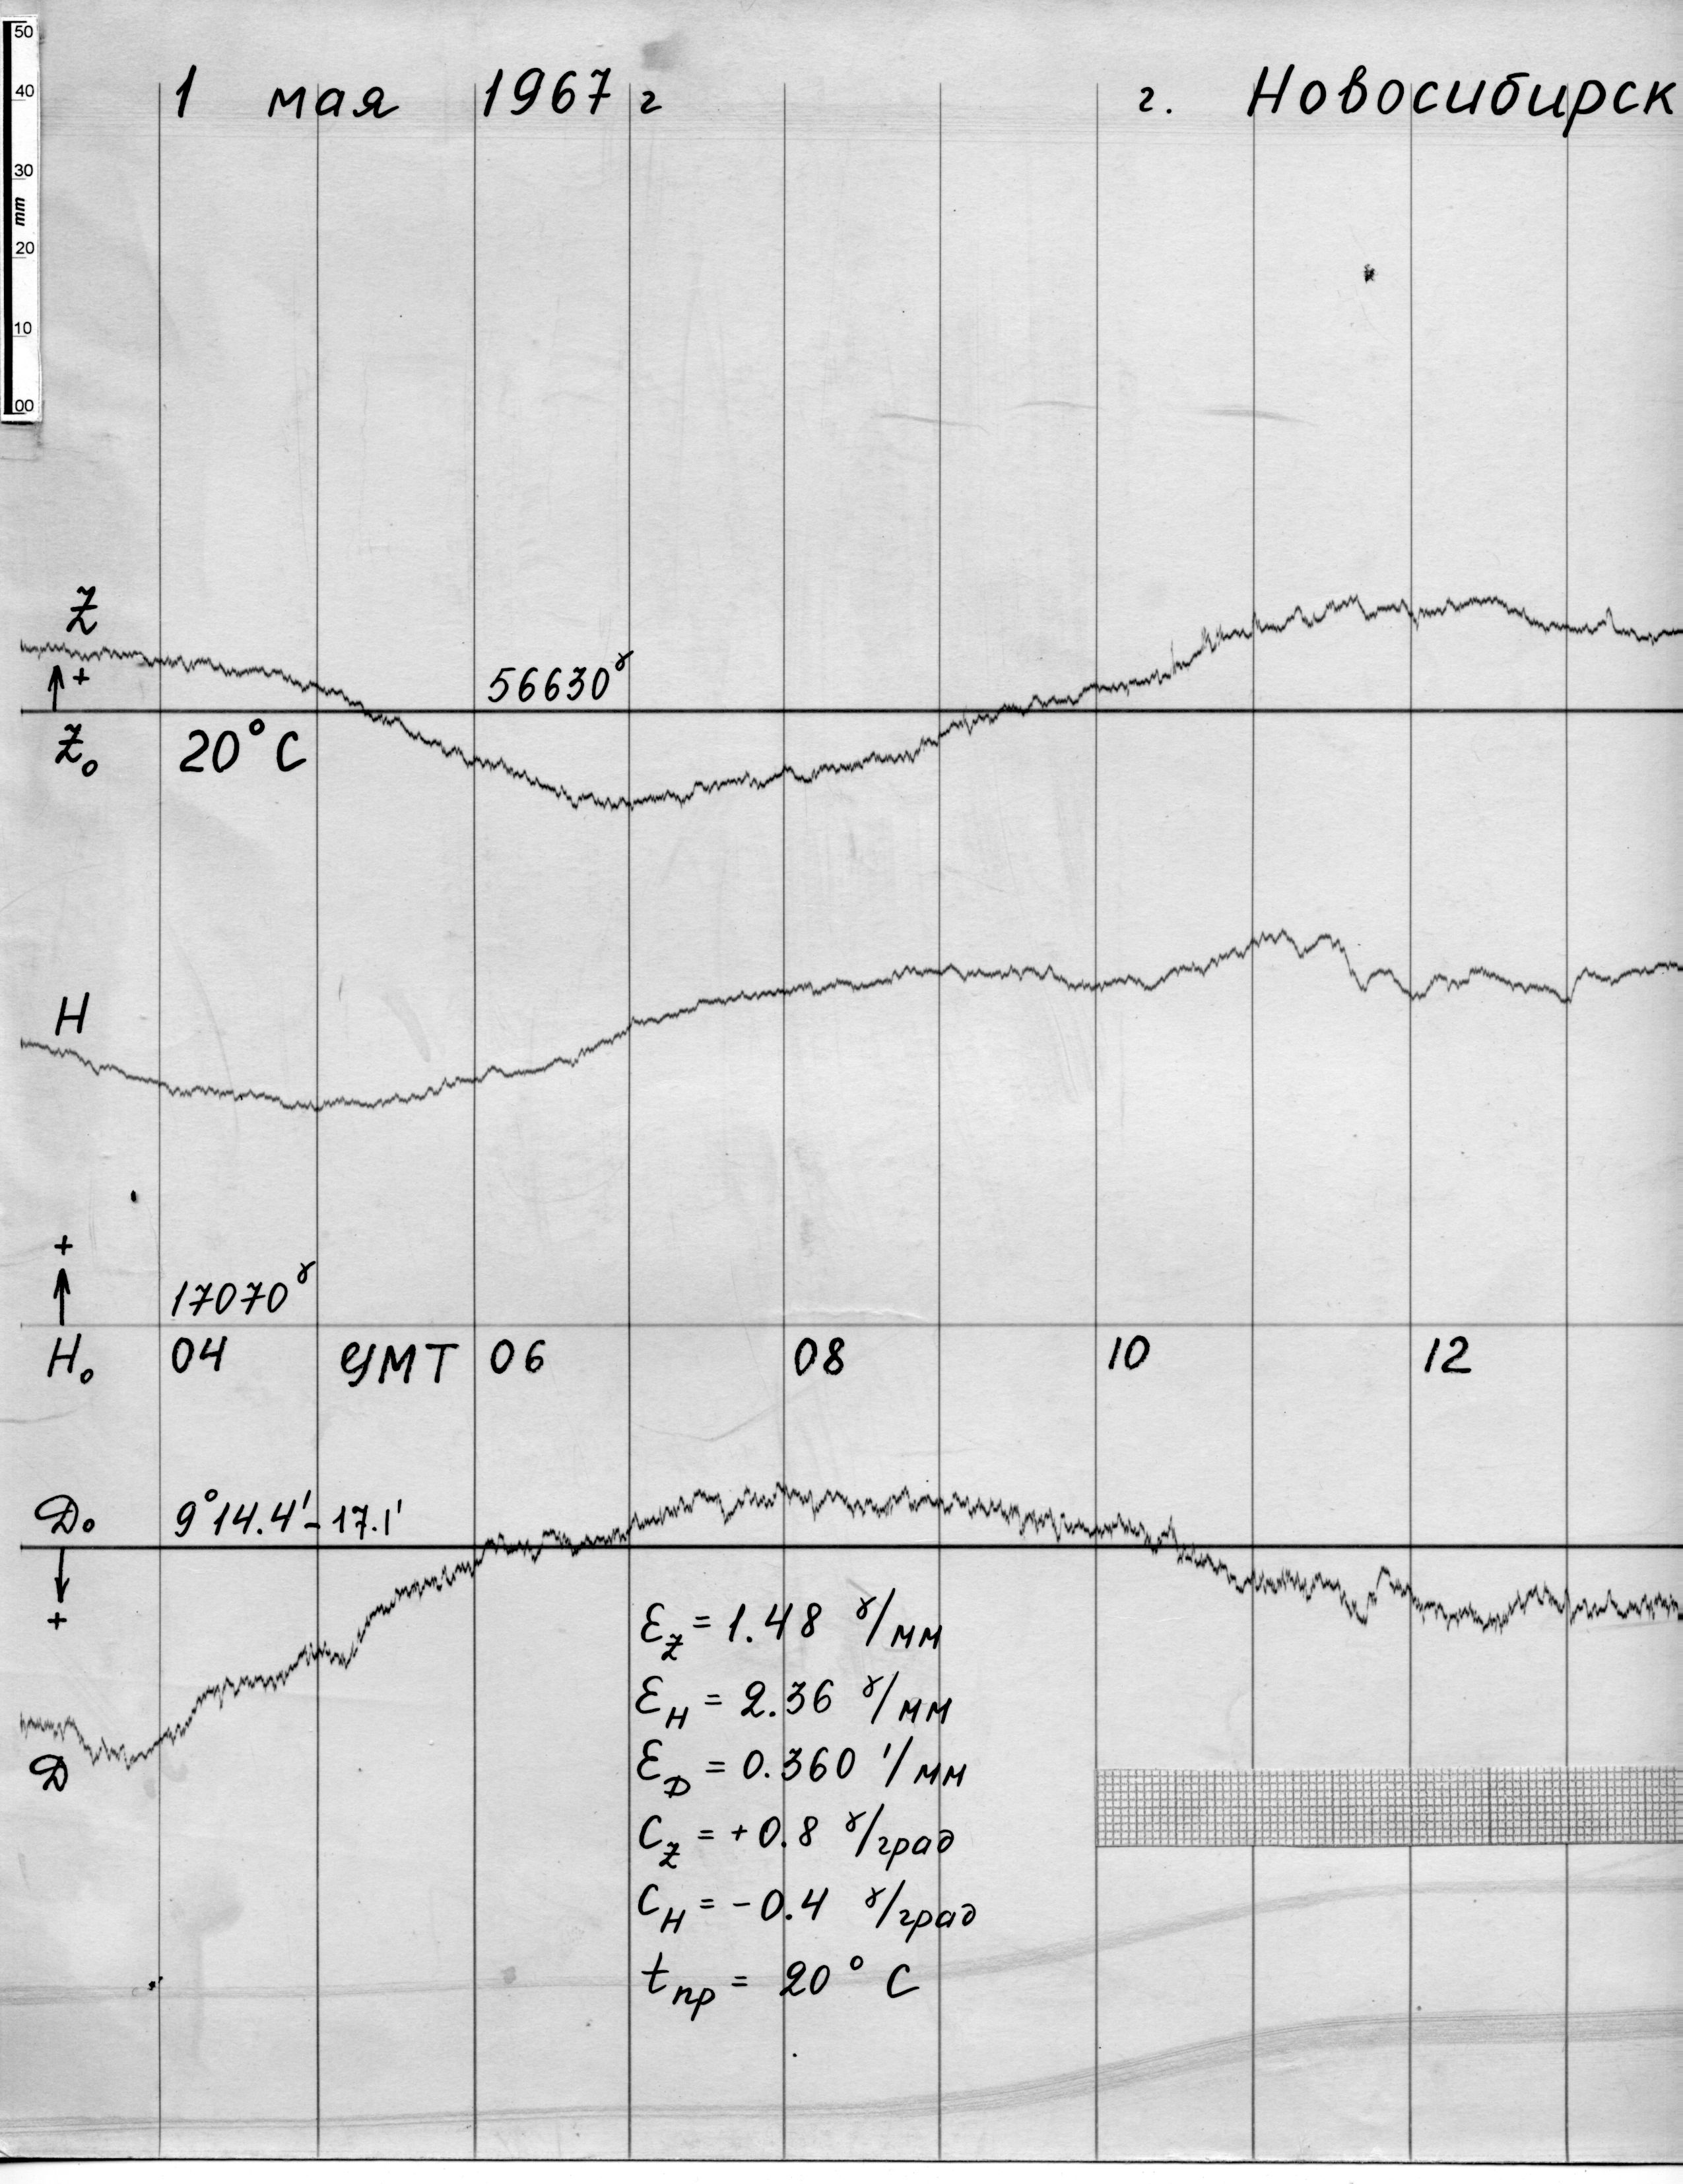 50
40
30
mm
20
10
00
1 мая 1967 г г. Новосибирск
Z
+
56630γ
Z₀ 20°C
H
+
17070γ
H₀ 04 УМТ 06 08 10 12
D₀ 9°14.4'-17.1'
+
Ɛz = 1.48 γ/мм
Ɛн = 2.36 γ/мм
ƐD = 0.360 '/мм
D
Cz = +0.8 γ/град
Cн = -0.4 γ/град
tпр = 20° C